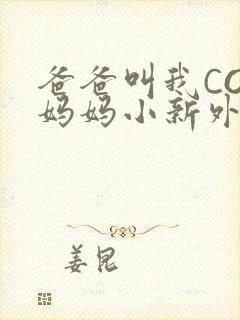 爸爸叫我CO
妈妈小新外
姜昆